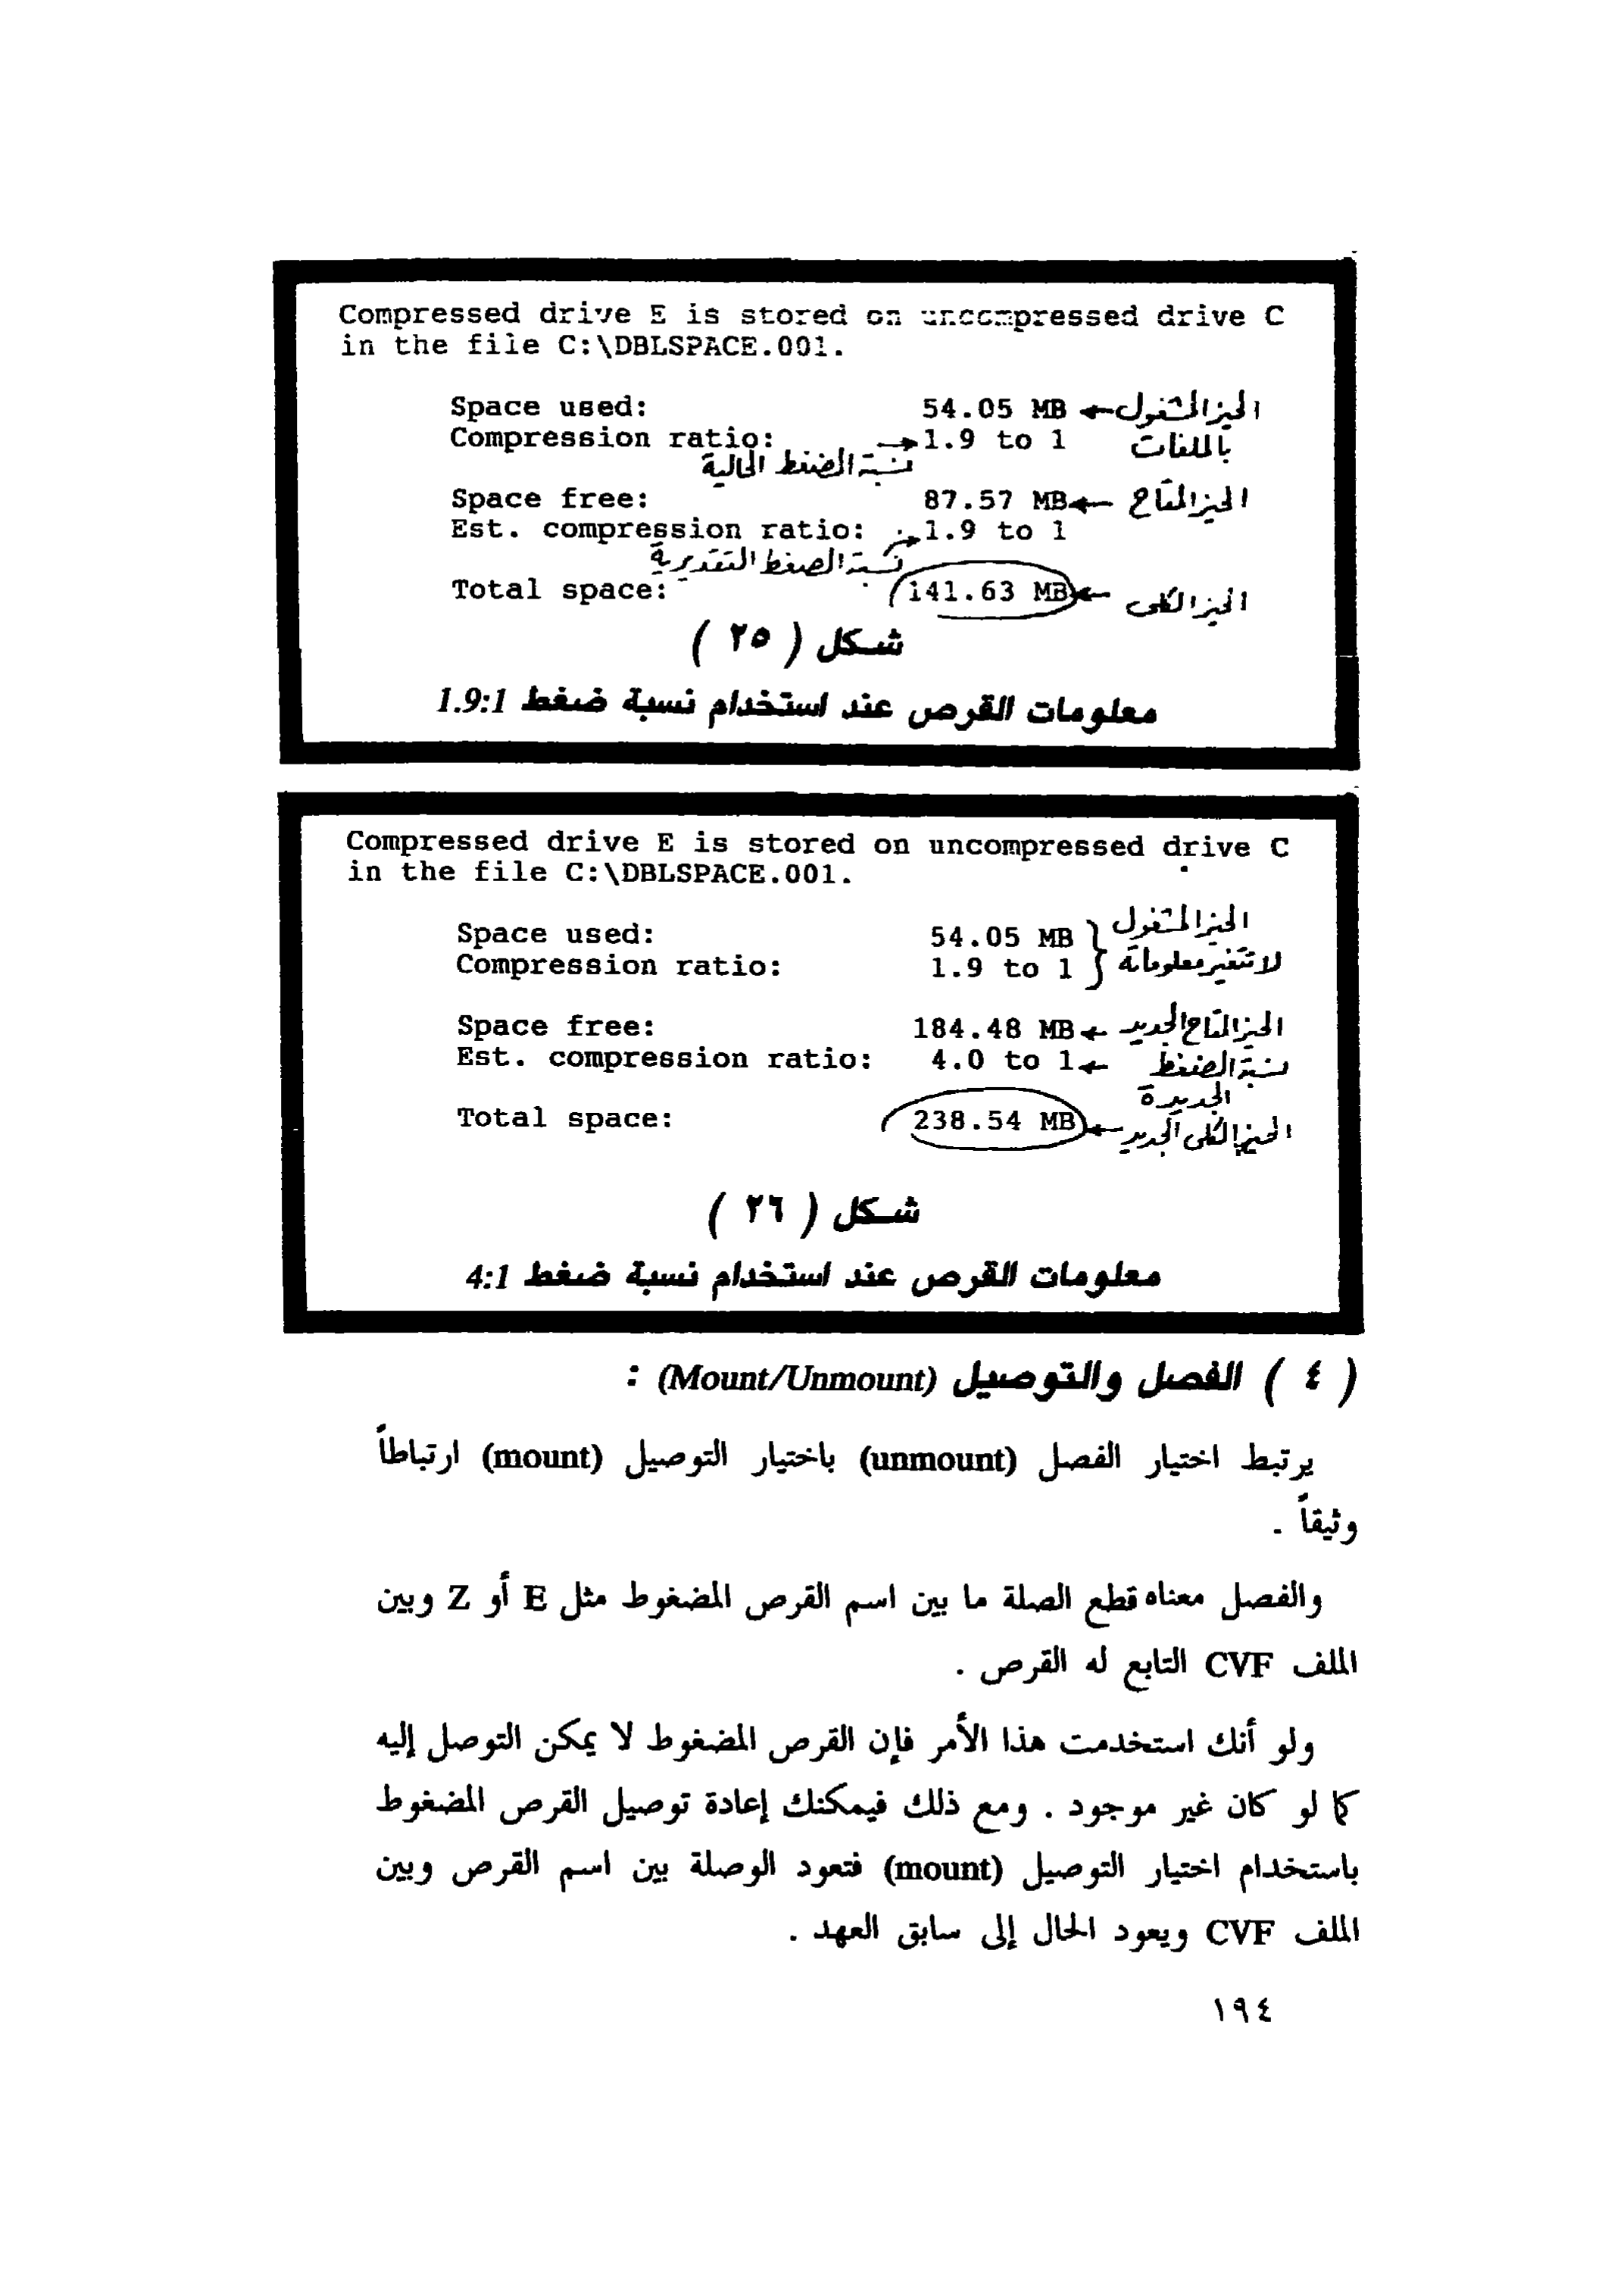 Compressed drive E is stored on uncompressed drive C
in the file C:\DBLSPACE.001.
Space used: 54.05 MB ← الحيز المشغول
Compression ratio: → 1.9 to 1 بالملفات
نسبة الضغط الحالية
Space free: 87.57 MB ← الحيز المتاح
Est. compression ratio: → 1.9 to 1
نسبة الضغط التقديرية
Total space: 141.63 MB ← الحيز الكلى
شكل ( ٢٥ )
معلومات القرص عند استخدام نسبة ضغط 1.9:1
Compressed drive E is stored on uncompressed drive C
in the file C:\DBLSPACE.001.
Space used: 54.05 MB } الحيز المشغول
Compression ratio: 1.9 to 1 } لا تتغير معلوماته
Space free: 184.48 MB ← الحيز المتاح الجديد
Est. compression ratio: 4.0 to 1 ← نسبة الضغط
الجديدة
Total space: 238.54 MB ← الحيز الكلى الجديد
شكل ( ٢٦ )
معلومات القرص عند استخدام نسبة ضغط 4:1
( ٤ ) الفصل والتوصيل (Mount/Unmount) :
يرتبط اختيار الفصل (unmount) باختيار التوصيل (mount) ارتباطاً
وثيقاً .
والفصل معناه قطع الصلة ما بين اسم القرص المضغوط مثل E أو Z وبين
الملف CVF التابع له القرص .
ولو أنك استخدمت هذا الأمر فإن القرص المضغوط لا يمكن التوصل إليه
كما لو كان غير موجود . ومع ذلك فيمكنك إعادة توصيل القرص المضغوط
باستخدام اختيار التوصيل (mount) فتعود الوصلة بين اسم القرص وبين
الملف CVF ويعود الحال إلى سابق العهد .
١٩٤